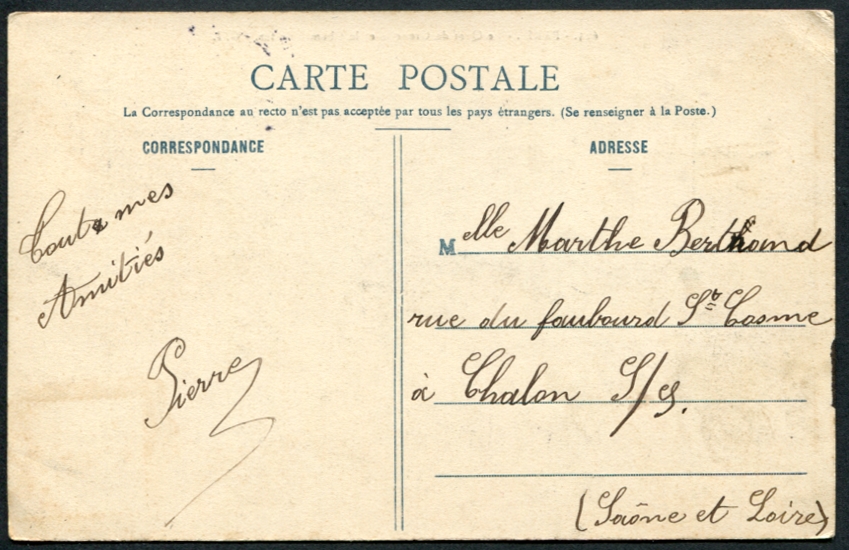 CARTE POSTALE
La Correspondance au recto n'est pas acceptée par tous les pays étrangers. (Se renseigner à la Poste.)
CORRESPONDANCE
Toutes mes
Amitiés
Pierre
ADRESSE
Melle Marthe Berthand
rue du faubourd St Cosme
à Chalon S/S.
(Saône et Loire)